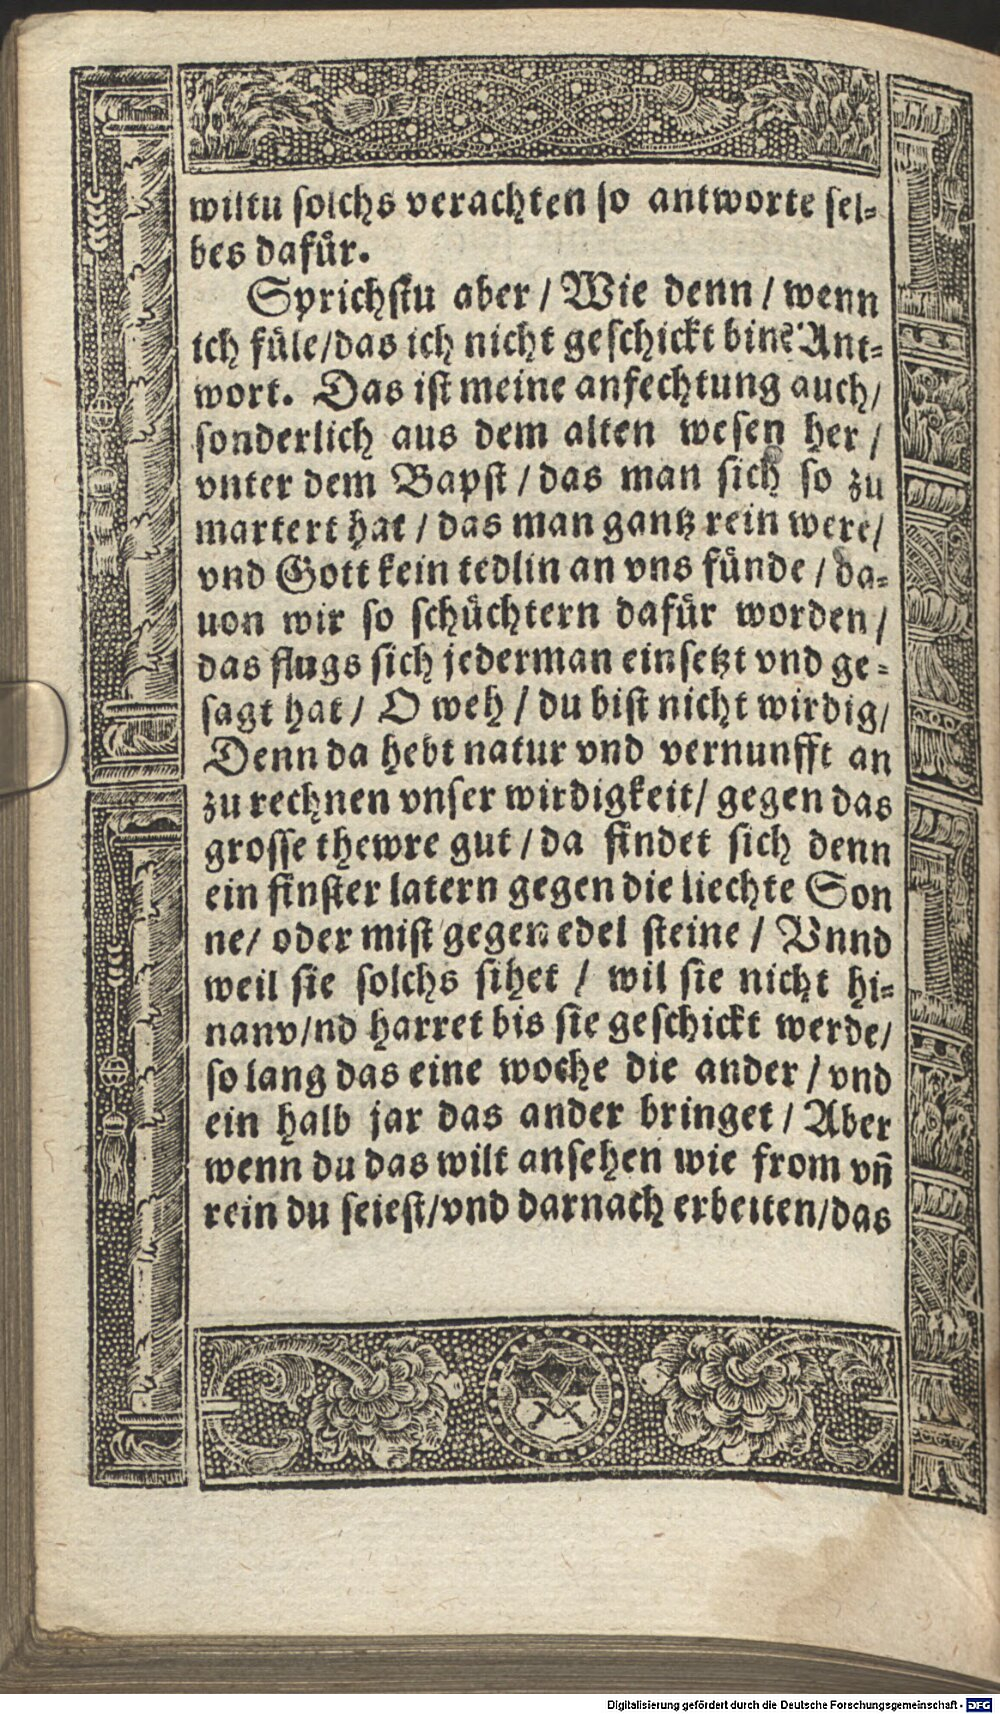 wiltu solchs verachten so antworte sel-
bes dafür.
Sprichstu aber / Wie denn / wenn
ich füle/das ich nicht geschickt bin? Ant-
wort. Das ist meine anfechtung auch/
sonderlich aus dem alten wesen her /
vnter dem Bapst / das man sich so zu
martert hat / das man gantz rein were/
vnd Gott kein tedlin an vns fünde / da-
uon wir so schüchtern dafür worden /
das flugs sich jederman einsetzt vnd ge-
sagt hat / O weh / du bist nicht wirdig/
Denn da hebt natur vnd vernunfft an
zu rechnen vnser wirdigkeit/ gegen das
grosse thewre gut / da findet sich denn
ein finster latern gegen die liechte Son
ne/ oder mist gegen edel steine / Vnnd
weil sie solchs sihet / wil sie nicht hi-
nanv/nd harret bis sie geschickt werde/
so lang das eine woche die ander / vnd
ein halb jar das ander bringet / Aber
wenn du das wilt ansehen wie from vn̄
rein du seiest/vnd darnach erbeiten/das
Digitalisierung gefördert durch die Deutsche Forschungsgemeinschaft - DFG